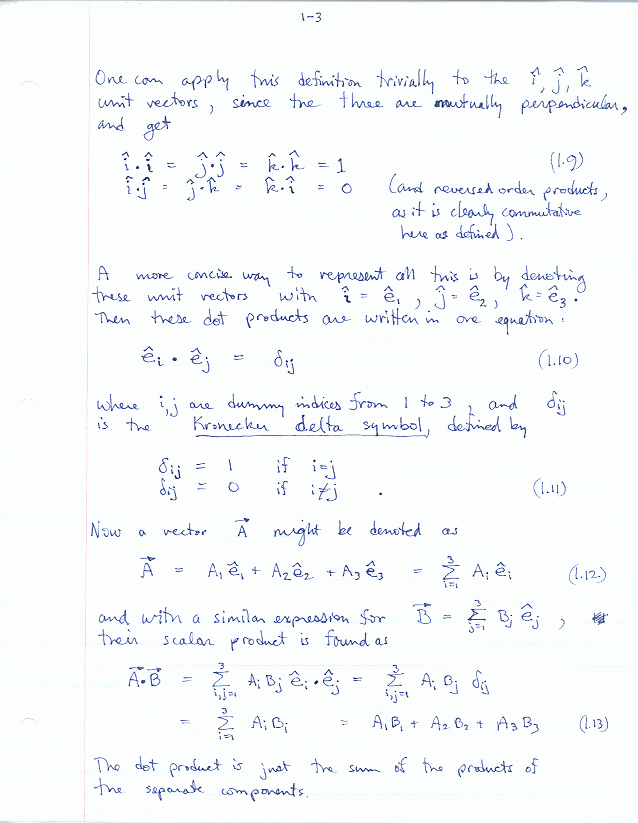 1-3
One can apply this definition trivially to the î, ĵ, k̂
unit vectors, since the three are mutually perpendicular,
and get
î·î = ĵ·ĵ = k̂·k̂ = 1 (1.9)
î·ĵ = ĵ·k̂ = k̂·î = 0 (and reversed order products,
as it is clearly commutative
here as defined).
A more concise way to represent all this is by denoting
these unit vectors with î = ê₁, ĵ = ê₂, k̂ = ê₃.
Then these dot products are written in one equation:
êᵢ · êⱼ = δᵢⱼ (1.10)
where i,j are dummy indices from 1 to 3, and δᵢⱼ
is the Kronecker delta symbol, defined by
δᵢⱼ = 1 if i=j
δᵢⱼ = 0 if i≠j . (1.11)
Now a vector A⃗ might be denoted as
A⃗ = A₁ê₁ + A₂ê₂ + A₃ê₃ = Σᵢ₌₁³ Aᵢ êᵢ (1.12)
and with a similar expression for B⃗ = Σⱼ₌₁³ Bⱼ êⱼ ,
their scalar product is found as
A⃗·B⃗ = Σᵢ,ⱼ₌₁³ Aᵢ Bⱼ êᵢ·êⱼ = Σᵢ,ⱼ₌₁³ Aᵢ Bⱼ δᵢⱼ
= Σᵢ₌₁³ Aᵢ Bᵢ = A₁B₁ + A₂B₂ + A₃B₃ (1.13)
The dot product is just the sum of the products of
the separate components.